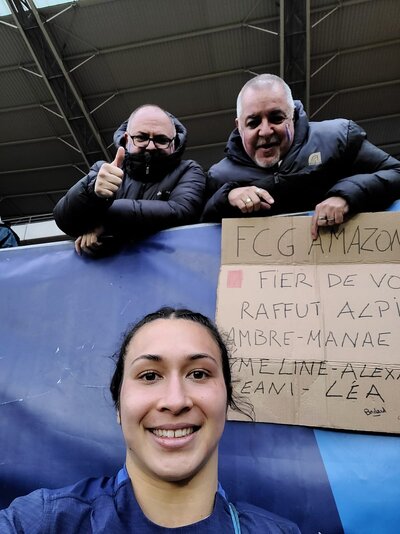 FCG AMAZON
FIER DE VO
RAFFUT ALPI
AMBRE-MANAE
EMELINE-ALEXA
EANI - LÉA